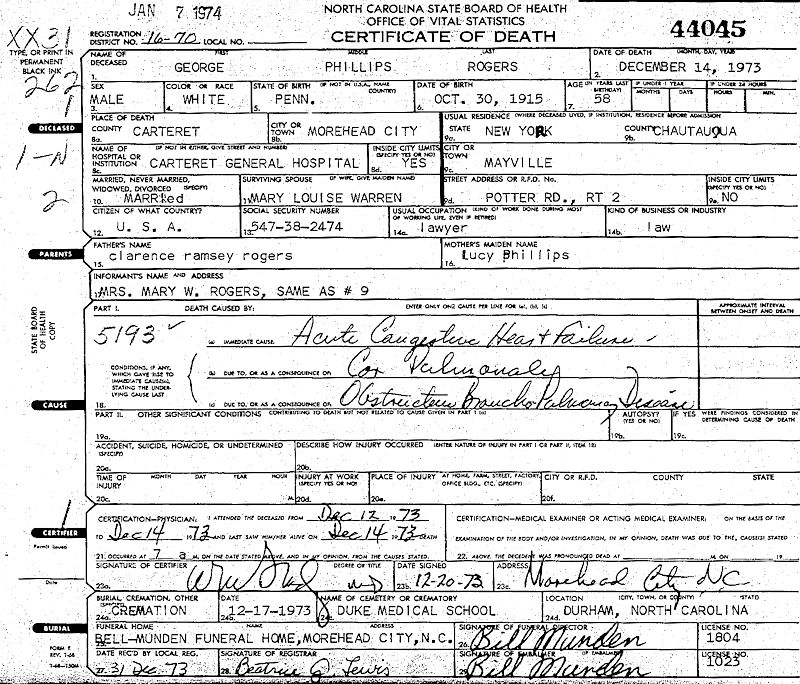 JAN 7 1974
NORTH CAROLINA STATE BOARD OF HEALTH
OFFICE OF VITAL STATISTICS
CERTIFICATE OF DEATH
44045
XX31
REGISTRATION DISTRICT NO. 16-70 LOCAL NO.
TYPE, OR PRINT IN PERMANENT BLACK INK
262
1
NAME OF DECEASED FIRST MIDDLE LAST DATE OF DEATH (MONTH, DAY, YEAR)
1. GEORGE PHILLIPS ROGERS 2. DECEMBER 14, 1973
SEX COLOR OR RACE STATE OF BIRTH (IF NOT IN U.S.A., NAME COUNTRY) DATE OF BIRTH AGE (IN YEARS LAST BIRTHDAY) IF UNDER 1 YEAR MONTHS DAYS IF UNDER 24 HOURS HOURS MIN.
3. MALE 4. WHITE 5. PENN. 6. OCT. 30, 1915 7. 58
DECEASED
PLACE OF DEATH USUAL RESIDENCE (WHERE DECEASED LIVED, IF INSTITUTION, RESIDENCE BEFORE ADMISSION)
COUNTY 8a. CARTERET CITY OR TOWN 8b. MOREHEAD CITY STATE 9a. NEW YORK COUNTY 9b. CHAUTAUQUA
1-N
NAME OF HOSPITAL OR INSTITUTION (IF NOT IN EITHER, GIVE STREET AND NUMBER) 8c. CARTERET GENERAL HOSPITAL INSIDE CITY LIMITS (SPECIFY YES OR NO) 8d. YES CITY OR TOWN 9c. MAYVILLE
2
MARRIED, NEVER MARRIED, WIDOWED, DIVORCED (SPECIFY) 10. MARRIed SURVIVING SPOUSE (IF WIFE, GIVE MAIDEN NAME) 11. MARY LOUISE WARREN STREET ADDRESS OR R.F.D. No. 9d. POTTER RD., RT 2 INSIDE CITY LIMITS (SPECIFY YES OR NO) 9e. NO
CITIZEN OF WHAT COUNTRY? SOCIAL SECURITY NUMBER USUAL OCCUPATION (KIND OF WORK DONE DURING MOST OF WORKING LIFE, EVEN IF RETIRED) KIND OF BUSINESS OR INDUSTRY
12. U. S. A. 13. 547-38-2474 14a. lawyer 14b. law
PARENTS
FATHER'S NAME MOTHER'S MAIDEN NAME
15. clarence ramsey rogers 16. Lucy Phillips
INFORMANT'S NAME AND ADDRESS
17. MRS. MARY W. ROGERS, SAME AS # 9
STATE BOARD OF HEALTH COPY
PART I. DEATH CAUSED BY: ENTER ONLY ONE CAUSE PER LINE FOR (a), (b), (c) APPROXIMATE INTERVAL BETWEEN ONSET AND DEATH
5193 (a) IMMEDIATE CAUSE Acute Congestive Heart Failure
CONDITIONS, IF ANY, WHICH GAVE RISE TO IMMEDIATE CAUSE(A), STATING THE UNDERLYING CAUSE LAST
(b) DUE TO, OR AS A CONSEQUENCE OF: Cor Pulmonale
CAUSE
18. (c) DUE TO, OR AS A CONSEQUENCE OF: Obstructive Broncho Pulmonary Disease
PART II. OTHER SIGNIFICANT CONDITIONS CONTRIBUTING TO DEATH BUT NOT RELATED TO CAUSE GIVEN IN PART I (a) AUTOPSY? (YES OR NO) IF YES WERE FINDINGS CONSIDERED IN DETERMINING CAUSE OF DEATH
19a. 19b. 19c.
ACCIDENT, SUICIDE, HOMICIDE, OR UNDETERMINED (SPECIFY) DESCRIBE HOW INJURY OCCURRED (ENTER NATURE OF INJURY IN PART I OR PART II, ITEM 18)
20a. 20b.
TIME OF INJURY MONTH DAY YEAR HOUR INJURY AT WORK (SPECIFY YES OR NO) PLACE OF INJURY AT HOME, FARM, STREET, FACTORY, OFFICE BLDG., ETC. (SPECIFY) CITY OR R.F.D. COUNTY STATE
20c. M. 20d. 20e. 20f.
1
CERTIFIER
CERTIFICATION—PHYSICIAN: I ATTENDED THE DECEASED FROM Dec 12 1973 CERTIFICATION—MEDICAL EXAMINER OR ACTING MEDICAL EXAMINER: ON THE BASIS OF THE
TO Dec 14 1973 AND LAST SAW HIM/HER ALIVE ON Dec 14 1973 DEATH EXAMINATION OF THE BODY AND/OR INVESTIGATION, IN MY OPINION, DEATH WAS DUE TO THE CAUSE(S) STATED
Permit Issued
21. OCCURRED AT 7 a M. ON THE DATE STATED ABOVE, AND IN MY OPINION, FROM THE CAUSES STATED. 22. ABOVE. THE DECEDENT WAS PRONOUNCED DEAD AT M. ON 19
Date
SIGNATURE OF CERTIFIER DEGREE OR TITLE DATE SIGNED ADDRESS
23a. MD 23b. 12-20-73 23c. Morehead City NC
BURIAL, CREMATION, OTHER (SPECIFY) DATE NAME OF CEMETERY OR CREMATORY LOCATION (CITY, TOWN, OR COUNTY) STATE
24a. CREMATION 24b. 12-17-1973 24c. DUKE MEDICAL SCHOOL 24d. DURHAM, NORTH CAROLINA
BURIAL
FUNERAL HOME NAME ADDRESS SIGNATURE OF FUNERAL DIRECTOR LICENSE NO.
25. BELL-MUNDEN FUNERAL HOME, MOREHEAD CITY, N.C. 26. Bill Munden 1804
FORM 8
REV. 1-68
1-68-150M
DATE REC'D BY LOCAL REG. SIGNATURE OF REGISTRAR SIGNATURE OF EMBALMER LICENSE NO.
27. 31 Dec. 73 28. Beatrice G. Lewis 29. Bill Munden 1023